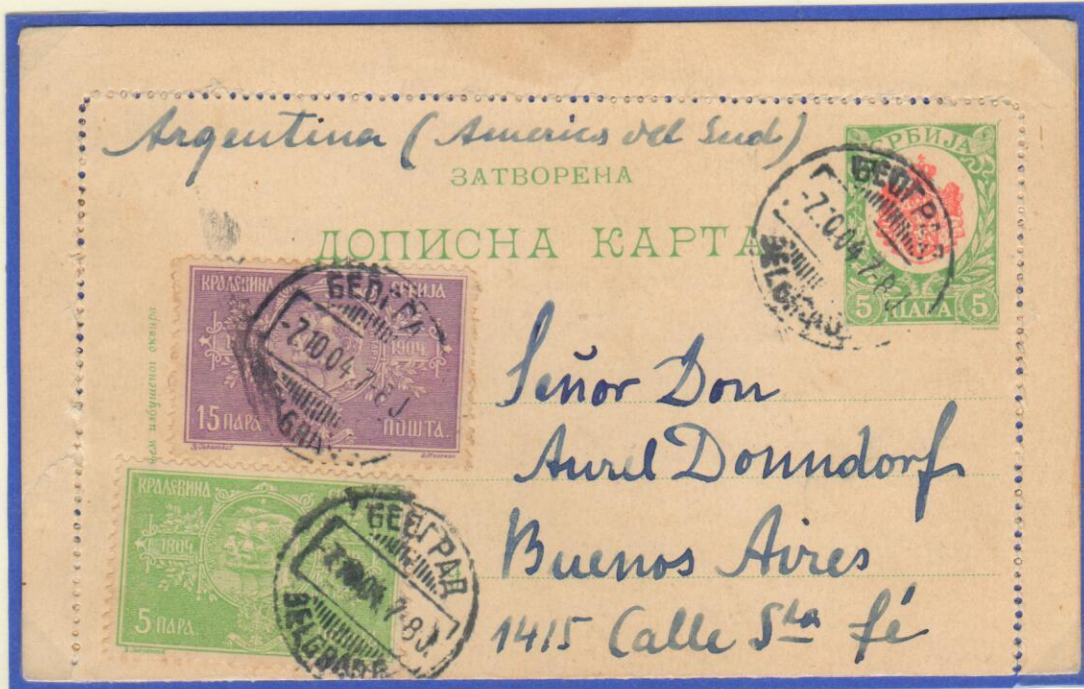 Argentina (America del Sud)
ЗАТВОРЕНА
ДОПИСНА КАРТА
СРБИЈА
5 ПАРА 5
БЕОГРАД
-7.10.04.7-8
BELGRADE
КРАЉЕВИНА СРБИЈА
1904
15 ПАРА ПОШТА.
БЕОГРА
-7.10.04.7-8
КРАЉЕВИНА
1804
5 ПАРА.
БЕОГРАД
7-8
BELGRADE
Señor Don
Aurel Donndorf
Buenos Aires
1415 Calle Sta fé